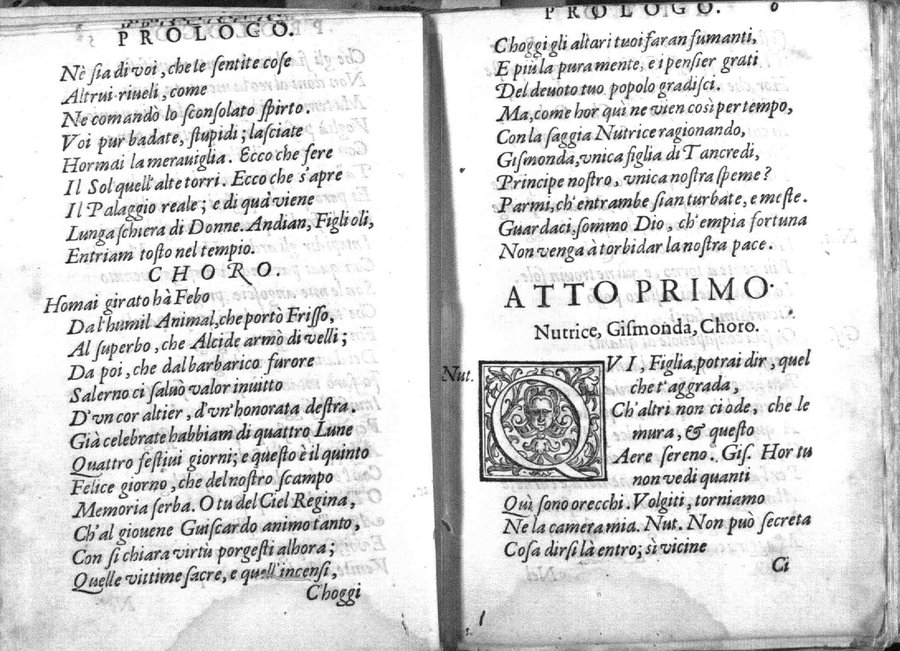 PROLOGO.
Nè sia di voi, che le sentite cose
Altrui riueli, come
Ne comandò lo sconsolato spirto.
Voi pur badate, stupidi; lasciate
Hormai la merauiglia. Ecco che fere
Il Sol quell'alte torri. Ecco che s'apre
Il Palaggio reale; e di quà viene
Lunga schiera di Donne. Andian, Figli oli,
Entriam tosto nel tempio.
CHORO.
Homai girato hà Febo
Da l'humil Animal, che portò Frisso,
Al superbo, che Alcide armò di velli;
Da poi, che dal barbarico furore
Salerno ci saluò valor inuitto
D'vn cor altier, d'vn'honorata destra.
Già celebrate habbiam di quattro Lune
Quattro festiui giorni; e questo è il quinto
Felice giorno, che del nostro scampo
Memoria serba. O tu del Ciel Regina,
Ch'al giouene Guiscardo animo tanto,
Con si chiara virtù porgesti alhora;
Quelle vittime sacre, e quell'incensi,
Choggi
PROLOGO. 6
Choggi gli altari tuoi faran fumanti,
E più la pura mente, e i pensier grati
Del deuoto tuo popolo gradisci.
Ma, come hor quì ne vien così per tempo,
Con la saggia Nutrice ragionando,
Gismonda, vnica figlia di Tancredi,
Principe nostro, vnica nostra speme?
Parmi, ch'entrambe sian turbate, e meste.
Guardaci, sommo Dio, ch'empia fortuna
Non venga à torbidar la nostra pace.
ATTO PRIMO.
Nutrice, Gismonda, Choro.
Nut. QVI, Figlia, potrai dir, quel
che t'aggrada,
Ch'altri non ci òde, che le
mura, & questo
Aere sereno. Gis. Hor tu
non vedi quanti
Quì sono orecchi. Volgiti, torniamo
Ne la camera mia. Nut. Non può secreta
Cosa dirsi là entro; sì vicine
Ci